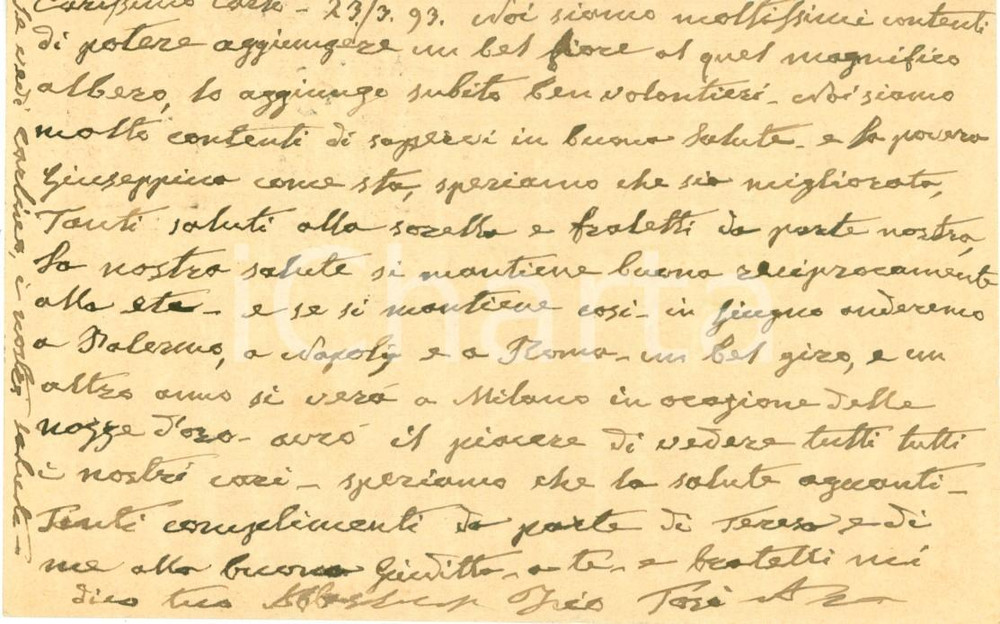 Carissimo Carlo - 23/3. 93. Noi siamo moltissimi contenti
di potere aggiungere un bel fiore al quel magnifico
albero, lo aggiungo subito ben volontieri - Noi siamo
molto contenti di sapervi in buona salute - e la povera
Giuseppina come sta, speriamo che sia migliorata,
Tanti saluti alla sorella e fratelli da parte nostra,
La nostra salute si mantiene buona reciprocamente
alla eta - e se si mantiene cosi - in giugno anderemo
a Palermo, a Napoli e a Roma - un bel giro, e un
altro anno si verá a Milano in ocazione delle
nozze d'oro - avró il piacere di vedere tutti tutti
i nostri cari - speriamo che la salute aguanti -
Tanti complimenti da parte di Teresa e di
me alla buona Giuditta - a te - e fratelli mi
dico tuo Zio Tosi
Se vedi Carlino, i nostri saluti -
iCharta